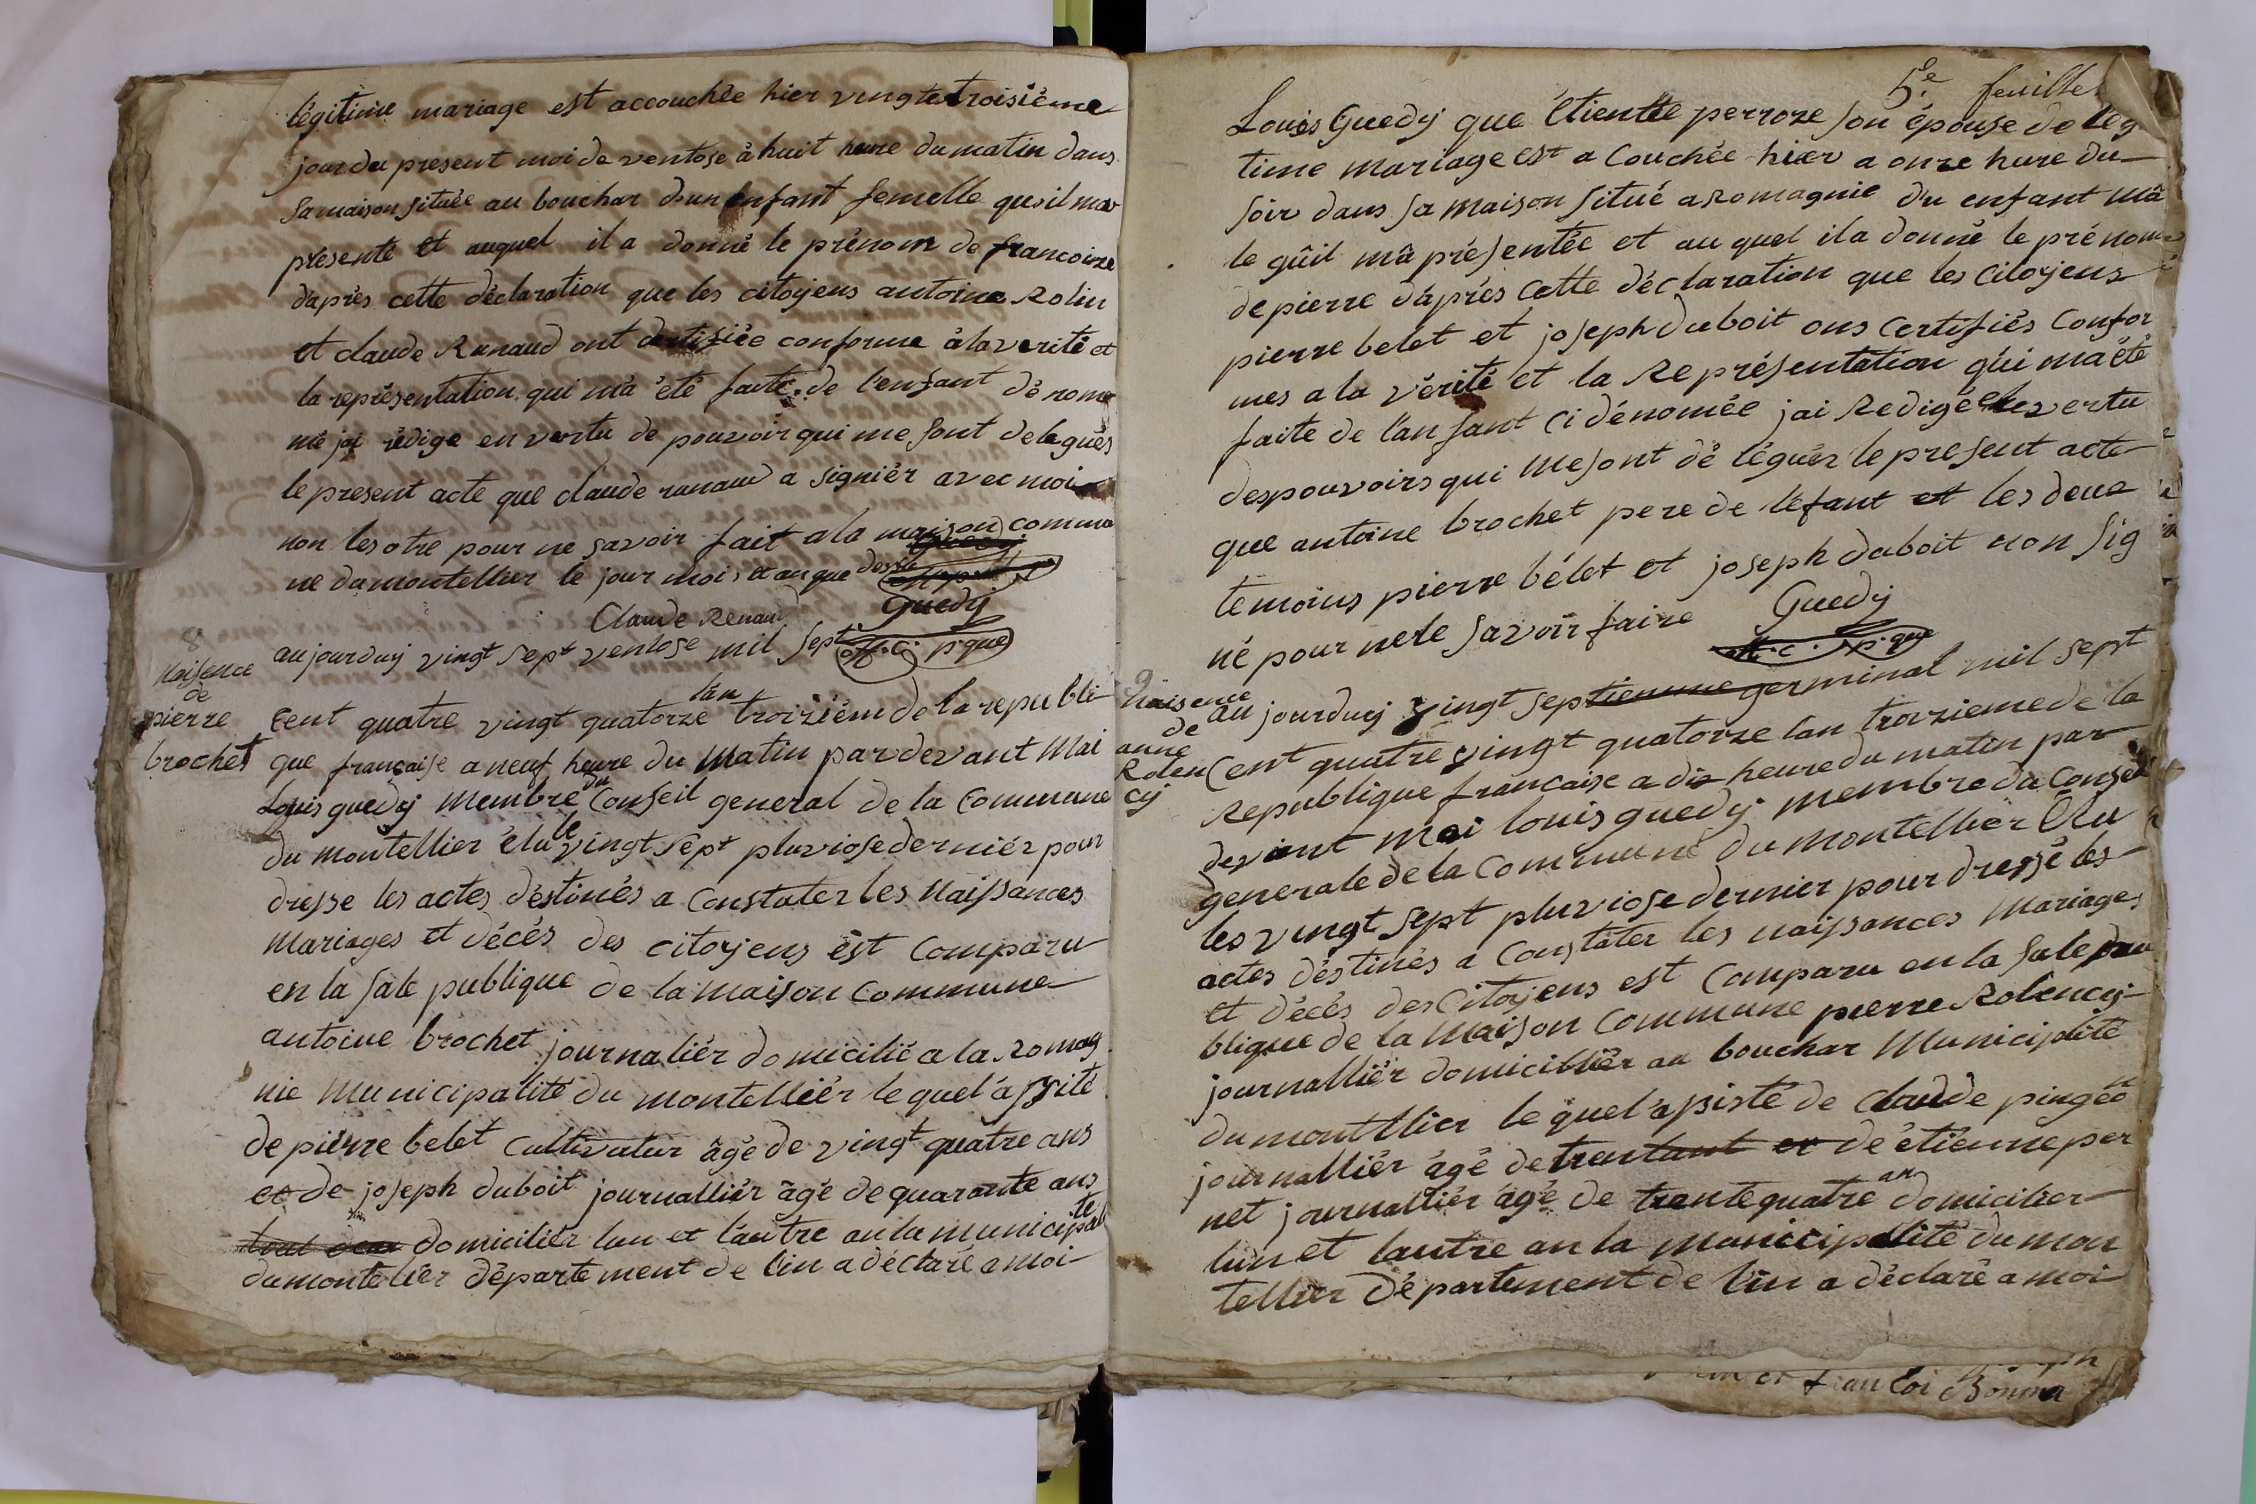 légitime mariage est accouchée hier vingtetroisiéme
jour du present moi de ventose à huit heure du matin dans
sa maison située au bouchar d'un enfant femelle qu'il ma
présenté et auquel il a donné le prénom de francoise
d'aprés cette déclaration que les citoyens antoine Rolin
et claude Renaud ont certifiée conforme à la verité et
la représentation qui m'a été faite de l'enfant dénom
mé jai rédige en vertu de pouvoir qui me sont delegués
le present acte que claude ranaud a signiér avec moi
non les otre pour ne savoir fait a la maison commu
ne du montellier le jour mois et an que dessu
Claude Renaud
Guedy
off. c. p.que
8
Naisence
de
pierre
brochet
aujourduy vingt sept ventose mil sept
cent quatre vingt quatorze lan troiziém de la republi
que française a neuf heure du matin par devant Moi
Louis guedy Membre du Conseil general de la Commune
du montellier élu le vingt sept pluviose derniér pour
dresse les actes déstinés a Constater les Naissances
Mariages et décés des citoyens est Comparu
en la sale publique de la maison Commune
antoine brochet journaliér domicilié a la Romag
nie Municipalité du montelliér le quel assité
de piérre belet Cultivatur âgé de vingt quatre ans
et de joseph duboit journalliér âgé de quarante ans
domiciliér lun et lautre au la municipalité
du montelier département de l'in a déclaré a moi
5e. feuille
Louis Guedy que Etiente perroze son épouse de leg
time mariage est a Couchée hier a onze hure du
soir dans sa maison situé a Romagnie du enfant mâ
le qûil mâ présentée et au quel il a donné le prénom
de pierre d'aprés cette déclaration que les citoyens
pierre belet et joseph duboit ons Certifiés Confor
mes a la vérité et la Représentation qui ma été
faite de l'anfant ci dénomée jai Redigée en vertu
des pouvoirs qui me sont déléguéz le present acte
que antoine brochet pere de l'éfant et les deux
temoins pierre bélet et joseph duboit non sig
né pour ne le savoir faire
Guedy
off. c. p.que
9
Naisence
de
anne
Rolen
cy
au jourduy vingt septiemme germinal mil sept
Cent quatre vingt quatorze lan troizieme de la
Republique francaise a dix heure du matin par
devant moi louis guedy membre du Conseil
generale de la Commune du montelliér élu
les vingt sept pluviose dernier pour dressé les
actes déstinés a Constater les naissances Mariages
et décés des Citoyens est Comparu en la sale pu
blique de la Maison Commune pierre Rolency
journalliér domicilliér au bouchar Municipalité
du montllier le quel apisté de Claude pingéon
journalliér âgé de de étiénne per
net journalliér âgé de trente quatre an domicilier
lun et lautre an la municipalité du mon
tellier Département de l'in a déclaré a moi